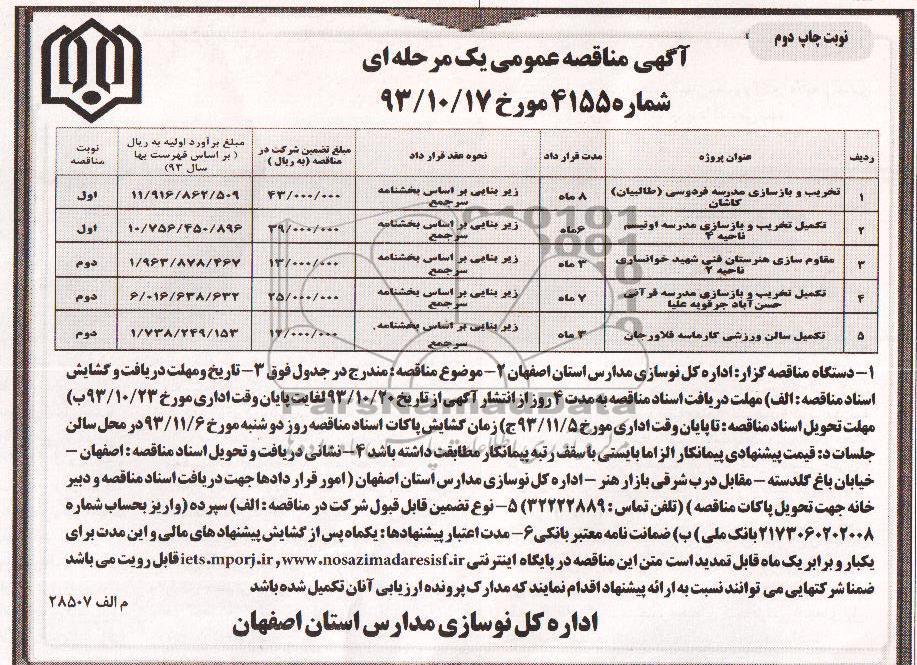 نوبت چاپ دوم
آگهی مناقصه عمومی یک مرحله ای
شماره ۴۱۵۵ مورخ ۹۳/۱۰/۱۷
ردیف عنوان پروژه مدت قرار داد نحوه عقد قرار داد مبلغ تضمین شرکت در مناقصه (به ریال) مبلغ برآورد اولیه به ریال (بر اساس فهرست بها سال ۹۳) نوبت مناقصه
۱ تخریب و بازسازی مدرسه فردوسی (طالبیان) کاشان ۸ ماه زیر بنایی بر اساس بخشنامه سرجمع ۴۳/۰۰۰/۰۰۰ ۱۱/۹۱۶/۸۶۲/۵۰۹ اول
۲ تکمیل تخریب و بازسازی مدرسه اوتیسم ناحیه ۴ ۶ماه زیر بنایی بر اساس بخشنامه سرجمع ۳۹/۰۰۰/۰۰۰ ۱۰/۷۵۶/۴۵۰/۸۹۶ اول
۳ مقاوم سازی هنرستان فنی شهید خوانساری ناحیه ۲ ۳ ماه زیر بنایی بر اساس بخشنامه سرجمع ۱۳/۰۰۰/۰۰۰ ۱/۹۶۳/۸۷۸/۴۶۷ دوم
۴ تکمیل تخریب و بازسازی مدرسه قرآنی حسن آباد جرقویه علیا ۷ ماه زیر بنایی بر اساس بخشنامه سرجمع ۲۵/۰۰۰/۰۰۰ ۶/۰۱۶/۶۳۸/۶۳۲ دوم
۵ تکمیل سالن ورزشی کارماسه فلاورجان ۳ ماه زیر بنایی بر اساس بخشنامه سرجمع ۱۲/۰۰۰/۰۰۰ ۱/۷۳۸/۲۴۹/۱۵۳ دوم
۱- دستگاه مناقصه گزار: اداره کل نوسازی مدارس استان اصفهان ۲- موضوع مناقصه: مندرج در جدول فوق ۳- تاریخ و مهلت دریافت و گشایش
اسناد مناقصه: الف) مهلت دریافت اسناد مناقصه به مدت ۴ روز از انتشار آگهی از تاریخ ۹۳/۱۰/۲۰ لغایت پایان وقت اداری مورخ ۹۳/۱۰/۲۳ ب)
مهلت تحویل اسناد مناقصه: تا پایان وقت اداری مورخ ۹۳/۱۱/۵ ج) زمان گشایش پاکات اسناد مناقصه روز دو شنبه مورخ ۹۳/۱۱/۶ در محل سالن
جلسات د: قیمت پیشنهادی پیمانکار الزاما بایستی با سقف رتبه پیمانکار مطابقت داشته باشد ۴- نشانی دریافت و تحویل اسناد مناقصه: اصفهان -
خیابان باغ گلدسته - مقابل درب شرقی بازار هنر - اداره کل نوسازی مدارس استان اصفهان (امور قرار دادها جهت دریافت اسناد مناقصه و دبیر
خانه جهت تحویل پاکات مناقصه) (تلفن تماس: ۳۲۲۲۲۸۸۹) ۵- نوع تضمین قابل قبول شرکت در مناقصه: الف) سپرده (واریز بحساب شماره
۲۱۷۳۰۶۰۲۰۲۰۰۸ بانک ملی) ب) ضمانت نامه معتبر بانکی ۶- مدت اعتبار پیشنهادها: یکماه پس از گشایش پیشنهاد های مالی و این مدت برای
یکبار و برابر یک ماه قابل تمدید است متن این مناقصه در پایگاه اینترنتی iets.mporj.ir, www.nosazimadaresisf.ir قابل رویت می باشد
ضمنا شرکتهایی می توانند نسبت به ارائه پیشنهاد اقدام نمایند که مدارک پرونده ارزیابی آنان تکمیل شده باشد
م الف ۲۸۵۰۷
اداره کل نوسازی مدارس استان اصفهان
ParsNamadData